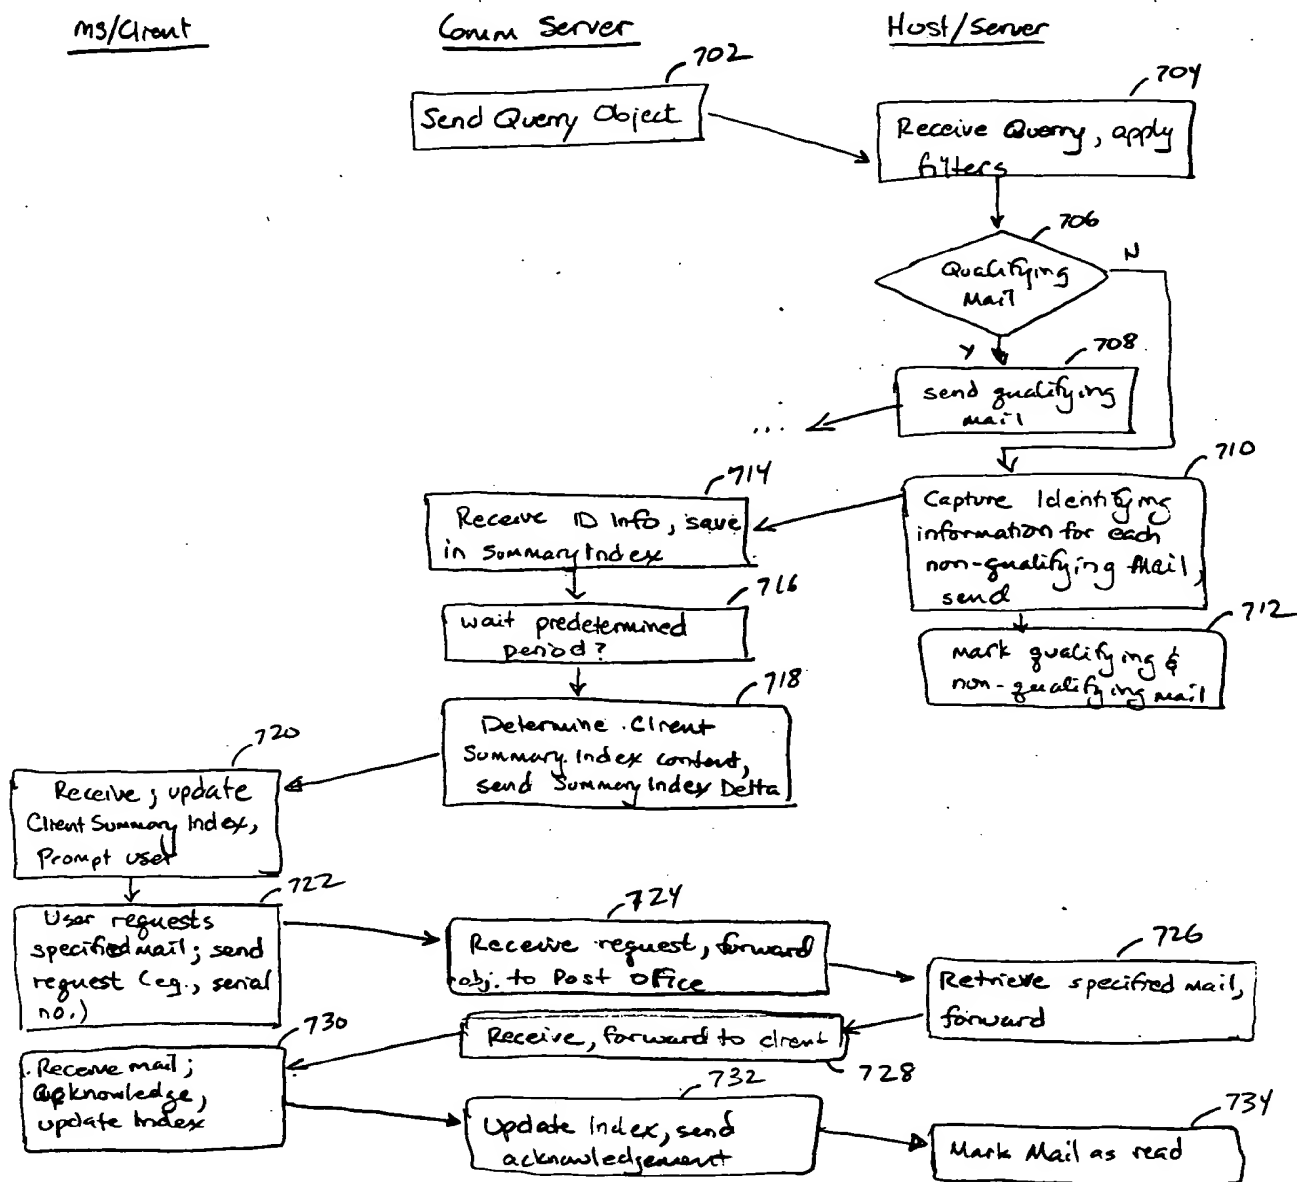 MS/Client
Comm Server
Host/Server
702
Send Query Object
704
Receive Query, apply
filters
706
Qualifying
Mail
N
Y
708
send qualifying
mail
...
710
Capture Identifying
information for each
non-qualifying Mail,
send
712
mark qualifying &
non-qualifying mail
714
Receive ID Info, save
in Summary Index
716
wait predetermined
period?
718
Determine Client
Summary Index content,
send Summary Index Delta
720
Receive; update
Client Summary Index,
Prompt user
722
User requests
specified mail; send
request (eg., serial
no.)
724
Receive request, forward
obj. to Post Office
726
Retrieve specified mail,
forward
Receive, forward to client
728
730
Receive mail;
acknowledge,
update Index
732
Update Index, send
acknowledgement
734
Mark Mail as read